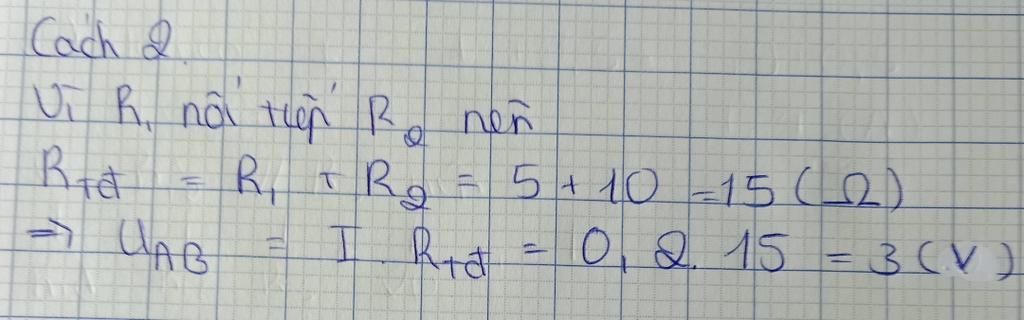 Cách 2.
Vì R₁ nối tiếp R₂ nên
R_tđ = R₁ + R₂ = 5 + 10 = 15 (Ω)
⇒ U_AB = I . R_tđ = 0,2 . 15 = 3 (V)